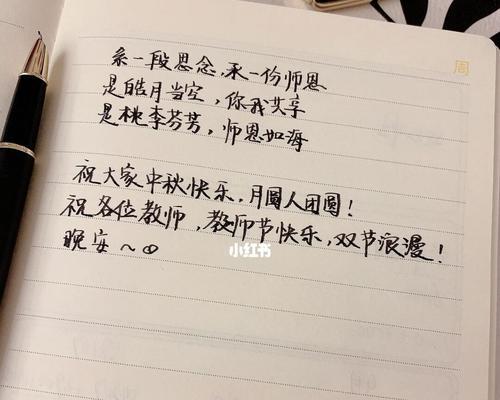 周
系一段思念，承一份师恩
是皓月当空，你我共享
是桃李芬芳，师恩如海
祝大家中秋快乐，月圆人团圆！
祝各位教师，教师节快乐，双节浪漫！
小红书
晚安～